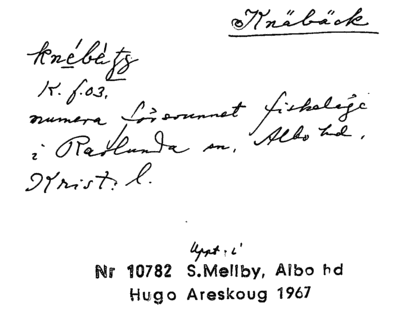 Knäbäck
knébétz
K. f.03.
numera försvunnet fiskeläge
i Ravlunda sn, Albo hd,
Krist. l.
Uppt. i
Nr 10782 S.Mellby, Albo hd
Hugo Areskoug 1967